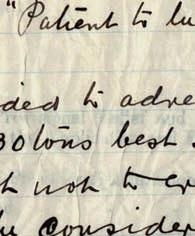 "Patient to lu
ded to adve
30 tons best
not to
consider